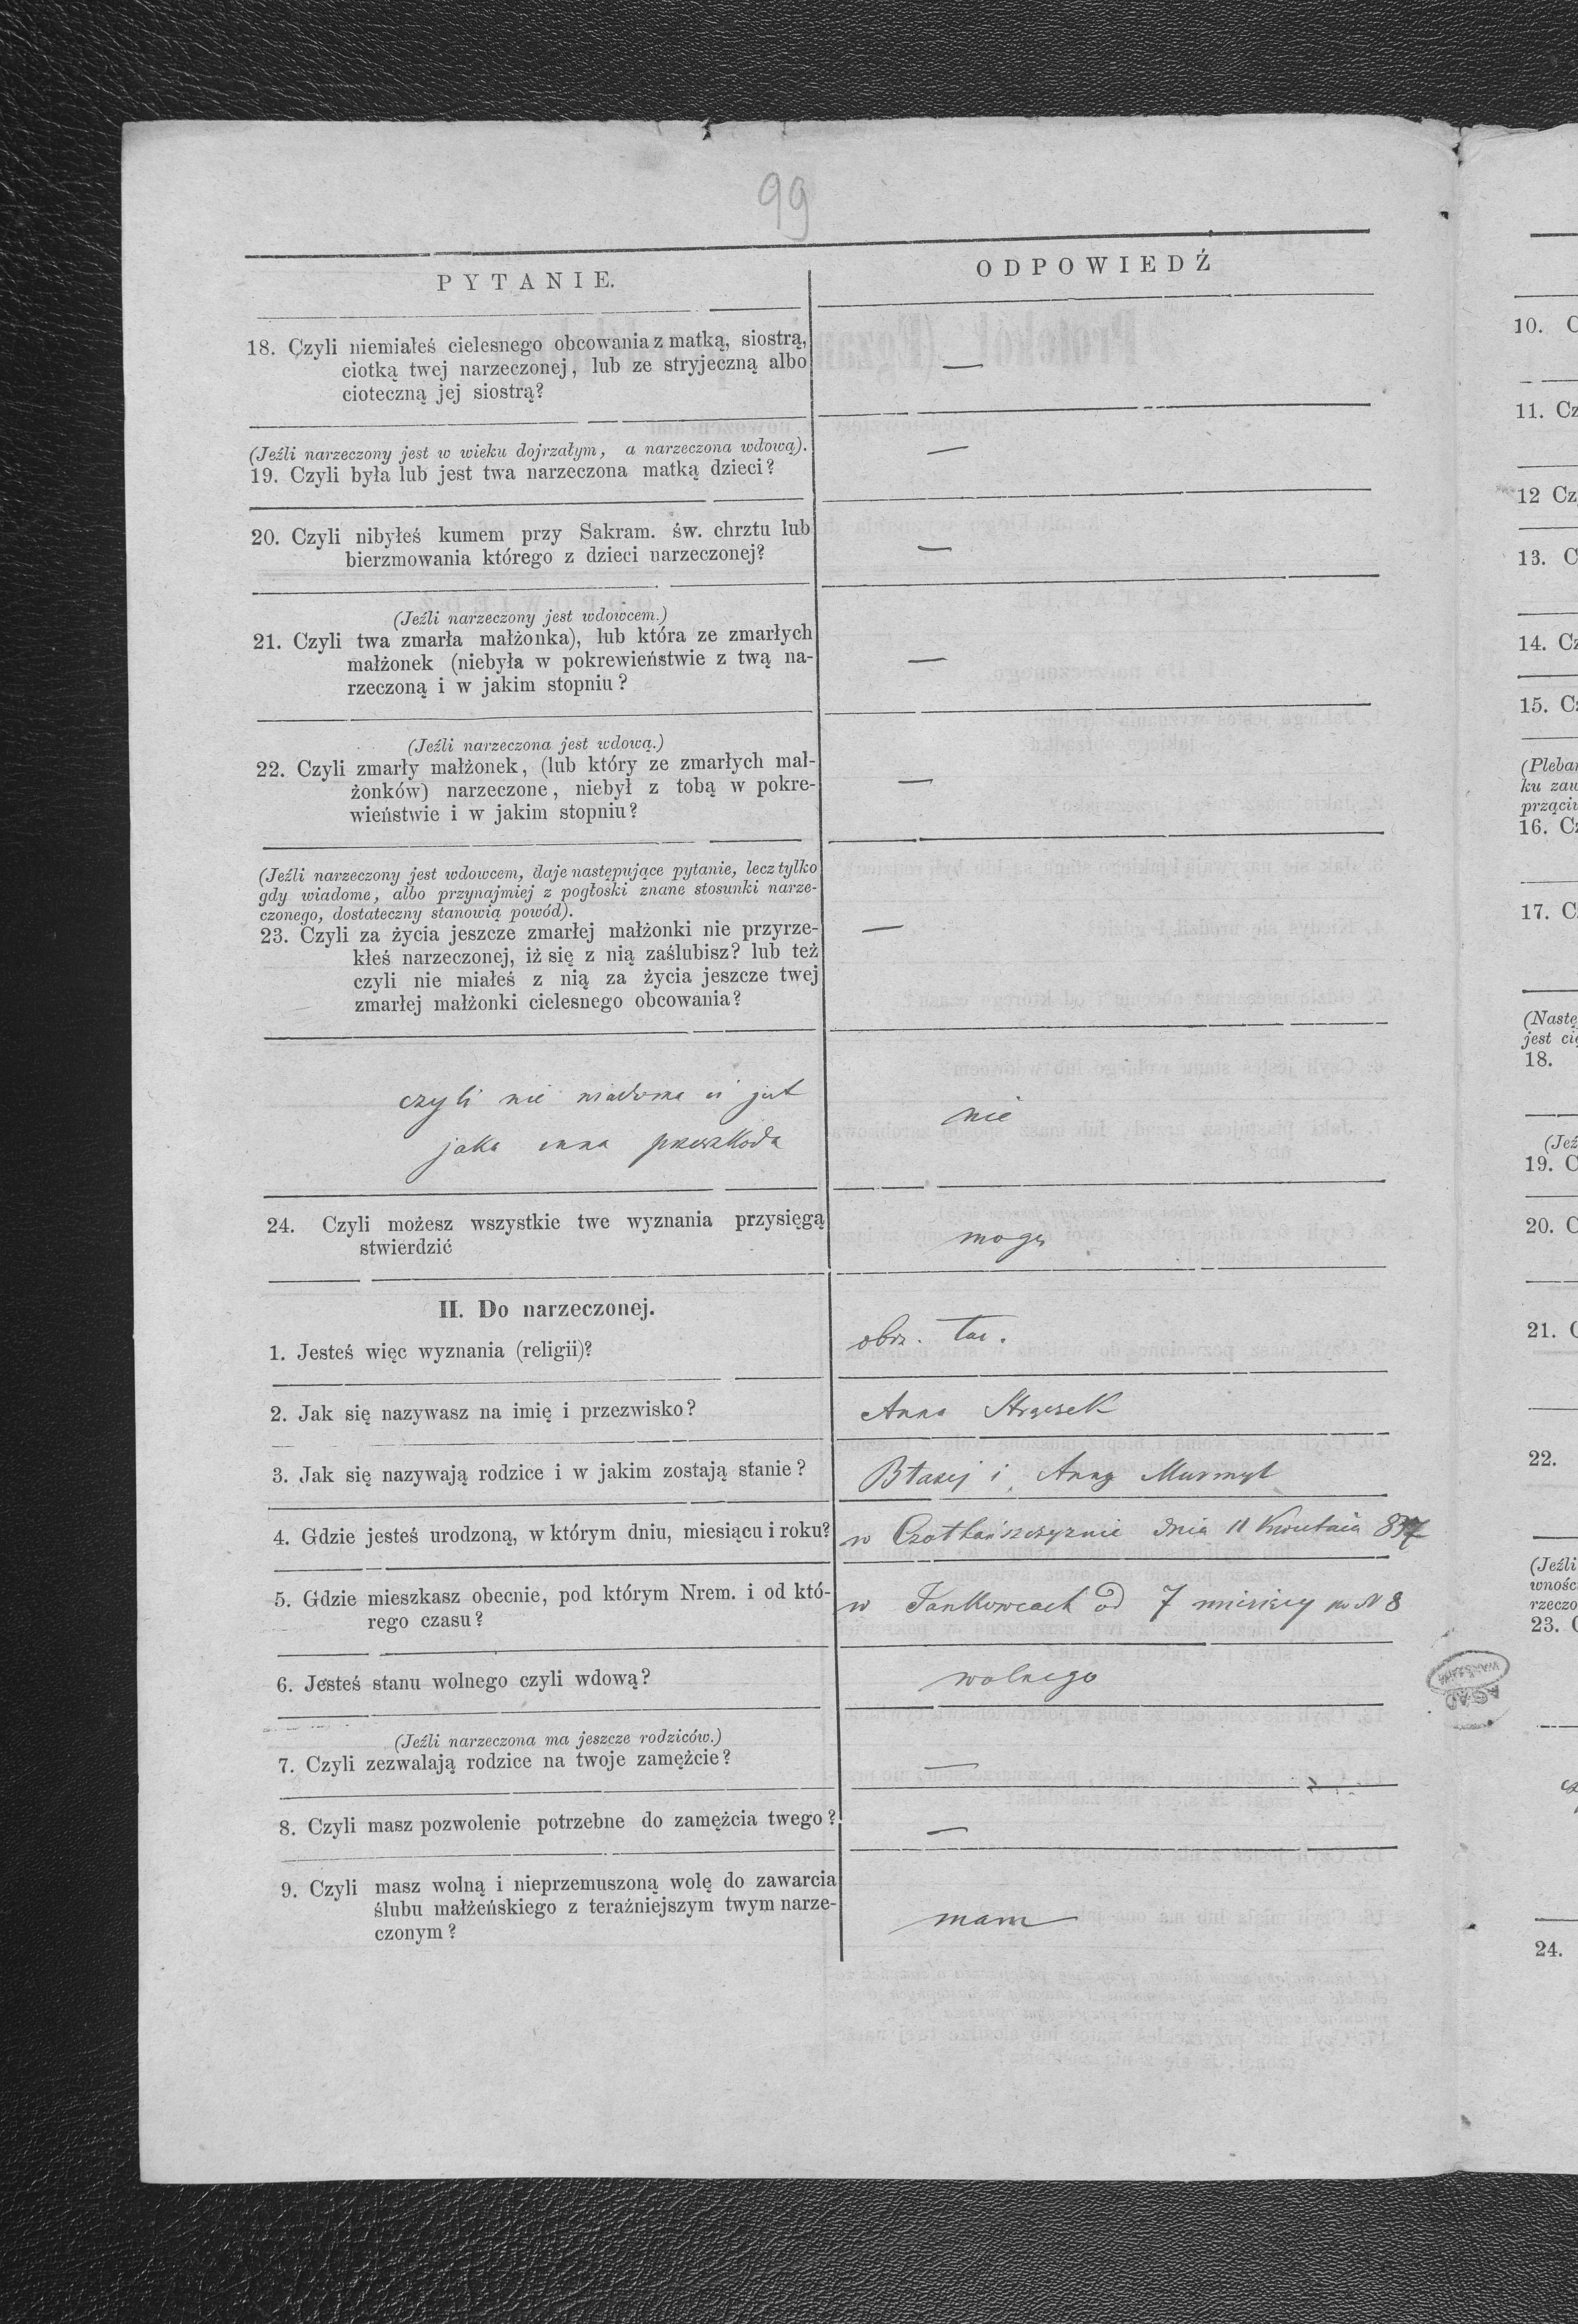 99
PYTANIE.
ODPOWIEDŹ
18. Czyli niemiałeś cielesnego obcowania z matką, siostrą,
ciotką twej narzeczonej, lub ze stryjeczną albo
cioteczną jej siostrą?
—
(Jeźli narzeczony jest w wieku dojrzałym, a narzeczona wdową).
19. Czyli była lub jest twa narzeczona matką dzieci?
—
20. Czyli nibyłeś kumem przy Sakram. św. chrztu lub
bierzmowania którego z dzieci narzeczonej?
—
(Jeźli narzeczony jest wdowcem.)
21. Czyli twa zmarła małżonka), lub która ze zmarłych
małżonek (niebyła w pokrewieństwie z twą na-
rzeczoną i w jakim stopniu?
—
(Jeźli narzeczona jest wdową.)
22. Czyli zmarły małżonek, (lub który ze zmarłych mał-
żonków) narzeczone, niebył z tobą w pokre-
wieństwie i w jakim stopniu?
—
(Jeźli narzeczony jest wdowcem, daje następujące pytanie, lecz tylko
gdy wiadome, albo przynajmiej z pogłoski znane stosunki narze-
czonego, dostateczny stanowią powód).
23. Czyli za życia jeszcze zmarłej małżonki nie przyrze-
kłeś narzeczonej, iż się z nią zaślubisz? lub też
czyli nie miałeś z nią za życia jeszcze twej
zmarłej małżonki cielesnego obcowania?
—
czyli nie wiadoma ci jest
jaka inna przeszkoda
nie
24. Czyli możesz wszystkie twe wyznania przysięgą
stwierdzić
mogę
II. Do narzeczonej.
1. Jesteś więc wyznania (religii)?
obrz. łac.
2. Jak się nazywasz na imię i przezwisko?
Anna
3. Jak się nazywają rodzice i w jakim zostają stanie?
Błażej i Anna
4. Gdzie jesteś urodzoną, w którym dniu, miesiącu i roku?
w dnia 11 Kwietnia
5. Gdzie mieszkasz obecnie, pod którym Nrem. i od któ-
rego czasu?
w od 7 miesięcy N 8
6. Jesteś stanu wolnego czyli wdową?
wolnego
(Jeźli narzeczona ma jeszcze rodziców.)
7. Czyli zezwalają rodzice na twoje zamężcie?
—
8. Czyli masz pozwolenie potrzebne do zamężcia twego?
—
9. Czyli masz wolną i nieprzemuszoną wolę do zawarcia
ślubu małżeńskiego z teraźniejszym twym narze-
czonym?
mam
AGAD
WARSZAWA
10.
11. Cz
12 Cz
13. C
14. Cz
15. Cz
(Pleban
ku zaw
16. Cz
17. C
(Nastę
jest
18.
(Jeź
19. C
20. C
21.
22.
(Jeźli
wnośc
rzeczo
23.
24.